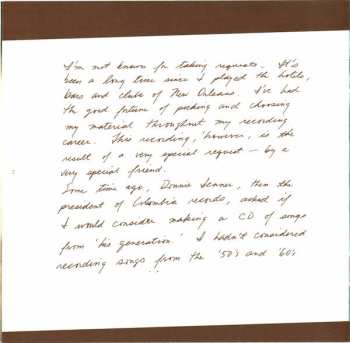 I'm not known for taking requests. It's
been a long time since I played the hotels,
bars and clubs of New Orleans. I've had
the good fortune of picking and choosing
my material throughout my recording
career. This recording, however, is the
result of a very special request – by a
very special friend.
Some time ago, Donnie Ienner, then the
president of Columbia records, asked if
I would consider making a CD of songs
from 'his generation.' I hadn't considered
recording songs from the '50's and '60's